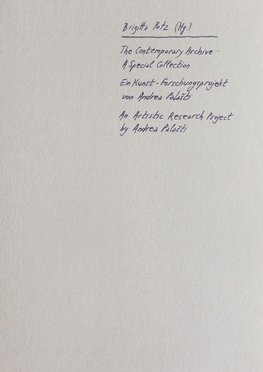 Brigitta Potz (Hg.)
The Contemporary Archive –
A Special Collection
Ein Kunst-Forschungsprojekt
von Andrea Palašti
An Artistic Research Project
by Andrea Palašti